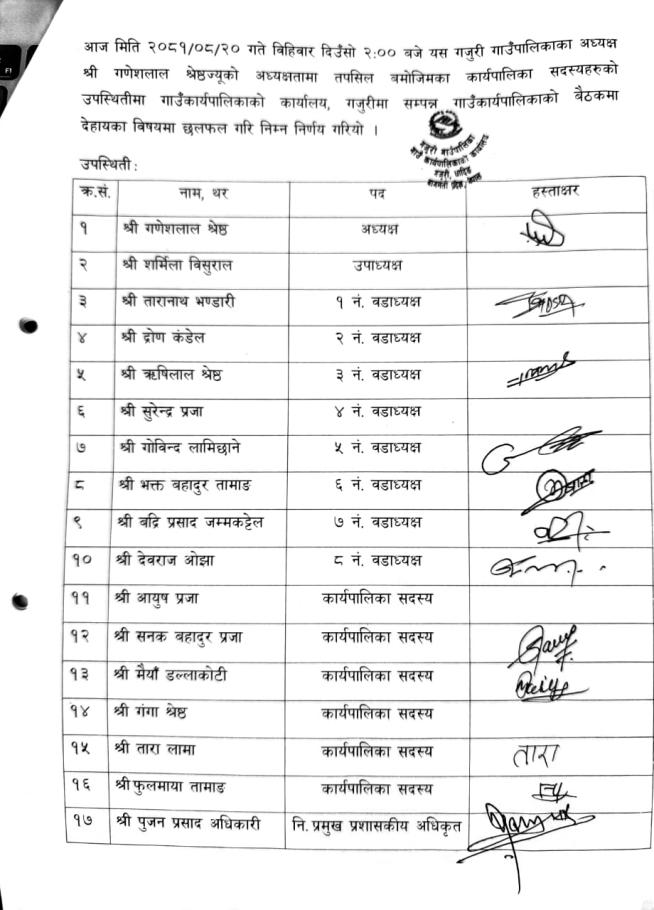 आज मिति २०८१/०८/२० गते बिहिवार दिउँसो २:०० बजे यस गजुरी गाउँपालिकाका अध्यक्ष
श्री गणेशलाल श्रेष्ठज्यूको अध्यक्षतामा तपसिल बमोजिमका कार्यपालिका सदस्यहरुको
उपस्थितीमा गाउँकार्यपालिकाको कार्यालय, गजुरीमा सम्पन्न गाउँकार्यपालिकाको बैठकमा
देहायका विषयमा छलफल गरि निम्न निर्णय गरियो ।
गजुरी गाउँपालिका
गाउँ कार्यपालिकाको कार्यालय
गजुरी, धादिङ
बागमती प्रदेश, नेपाल
उपस्थिती :
क्र.सं. नाम, थर पद हस्ताक्षर
१ श्री गणेशलाल श्रेष्ठ अध्यक्ष
२ श्री शर्मिला बिसुराल उपाध्यक्ष
३ श्री तारानाथ भण्डारी १ नं. वडाध्यक्ष
४ श्री द्रोण कंडेल २ नं. वडाध्यक्ष
५ श्री ऋषिलाल श्रेष्ठ ३ नं. वडाध्यक्ष
६ श्री सुरेन्द्र प्रजा ४ नं. वडाध्यक्ष
७ श्री गोविन्द लामिछाने ५ नं. वडाध्यक्ष
८ श्री भक्त बहादुर तामाङ ६ नं. वडाध्यक्ष
९ श्री बद्रि प्रसाद जम्मकट्टेल ७ नं. वडाध्यक्ष
१० श्री देवराज ओझा ८ नं. वडाध्यक्ष
११ श्री आयुष प्रजा कार्यपालिका सदस्य
१२ श्री सनक बहादुर प्रजा कार्यपालिका सदस्य
१३ श्री मैयाँ डल्लाकोटी कार्यपालिका सदस्य
१४ श्री गंगा श्रेष्ठ कार्यपालिका सदस्य
१५ श्री तारा लामा कार्यपालिका सदस्य तारा
१६ श्री फुलमाया तामाङ कार्यपालिका सदस्य
१७ श्री पुजन प्रसाद अधिकारी नि. प्रमुख प्रशासकीय अधिकृत